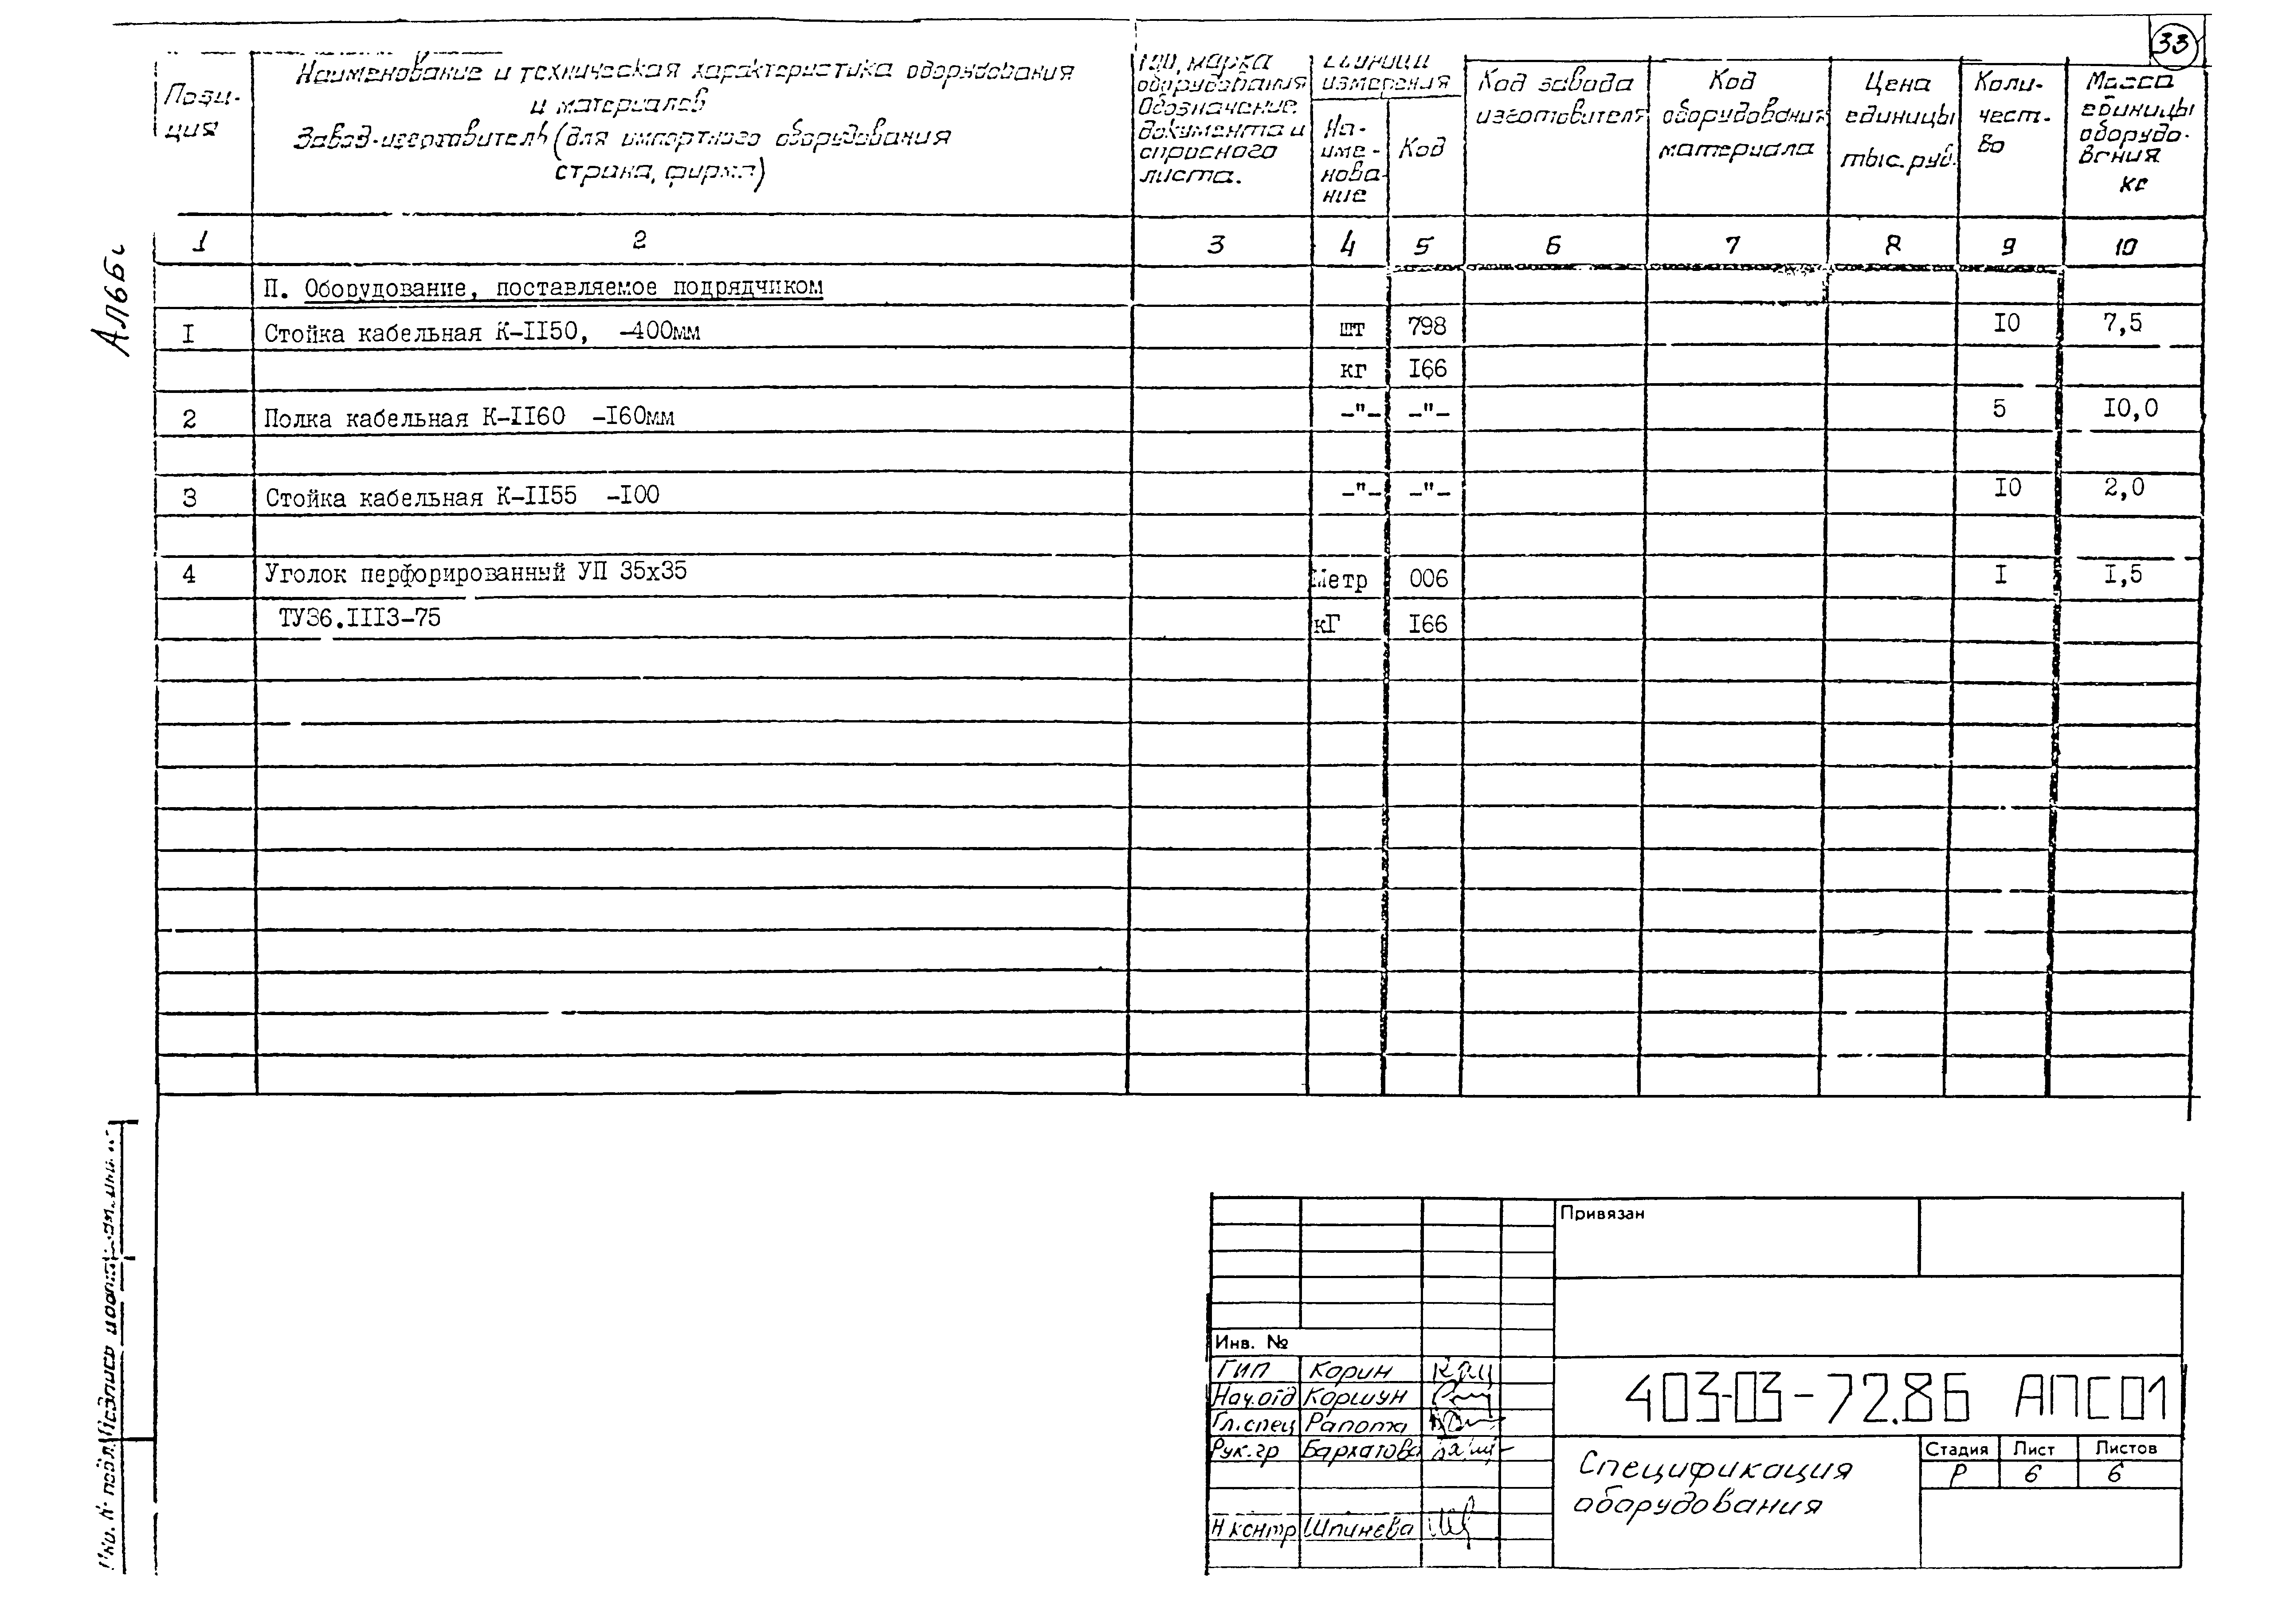 33
Ал66г
Пози-
ция
Наименование и техническая характеристика оборудования
и материалов
Завод-изготовитель (для импортного оборудования
страна, фирма)
Тип, марка
оборудования
Обозначение
документа и
опросного
листа.
Единица
измерения
На-
име-
нова-
ние
Код
Код завода
изготовителя
Код
оборудования
материала
Цена
единицы
тыс.руб.
Коли-
чест-
во
Масса
единицы
оборудо-
вания
кг
1 2 3 4 5 6 7 8 9 10
П. Оборудование, поставляемое подрядчиком
I Стойка кабельная К-II50, -400мм шт 798 I0 7,5
кг I66
2 Полка кабельная К-II60 -I60мм -"- -"- 5 I0,0
3 Стойка кабельная К-II55 -I00 -"- -"- I0 2,0
4 Уголок перфорированный УП 35х35 Метр 006 I I,5
ТУ36.III3-75 кГ I66
Привязан
Инв. №
ГИП Корин
Нач.отд Коршун
Гл.спец Рапота
Рук.гр Бархатова
Н контр Шпинева
403-03-72.86 АПС01
Спецификация
оборудования
Стадия Лист Листов
Р 6 6